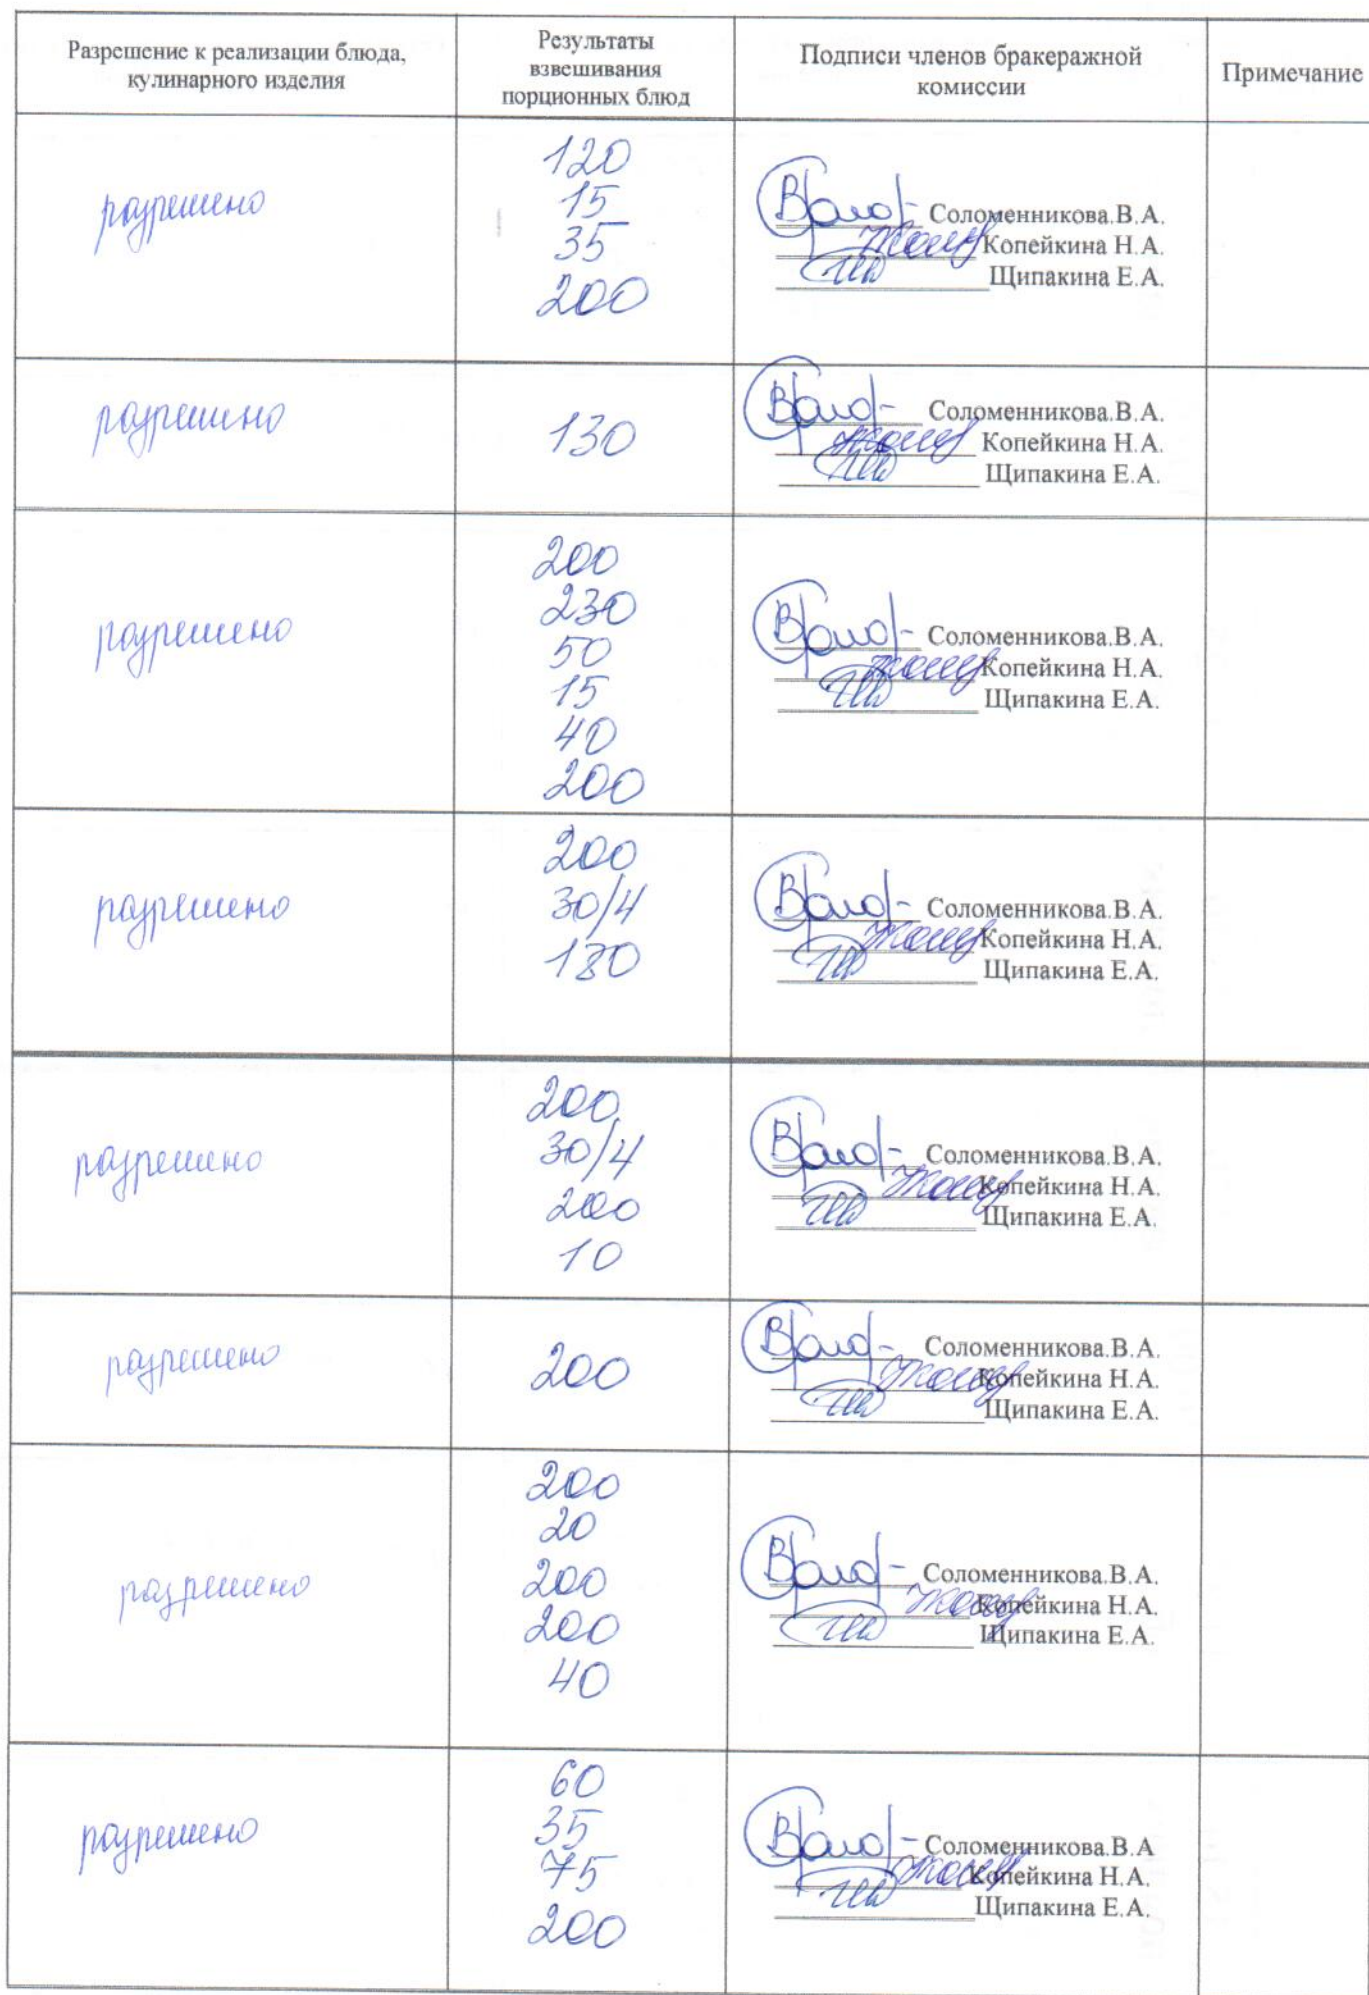 Разрешение к реализации блюда,
кулинарного изделия
Результаты
взвешивания
порционных блюд
Подписи членов бракеражной
комиссии
Примечание
разрешено
120
15
35
200
Соломенникова.В.А.
Копейкина Н.А.
Щипакина Е.А.
разрешено
130
Соломенникова.В.А.
Копейкина Н.А.
Щипакина Е.А.
разрешено
200
230
50
15
40
200
Соломенникова.В.А.
Копейкина Н.А.
Щипакина Е.А.
разрешено
200
30/4
180
Соломенникова.В.А.
Копейкина Н.А.
Щипакина Е.А.
разрешено
200
30/4
200
10
Соломенникова.В.А.
Копейкина Н.А.
Щипакина Е.А.
разрешено
200
Соломенникова.В.А.
Копейкина Н.А.
Щипакина Е.А.
разрешено
200
20
200
200
40
Соломенникова.В.А.
Копейкина Н.А.
Щипакина Е.А.
разрешено
60
35
75
200
Соломенникова.В.А
Копейкина Н.А.
Щипакина Е.А.